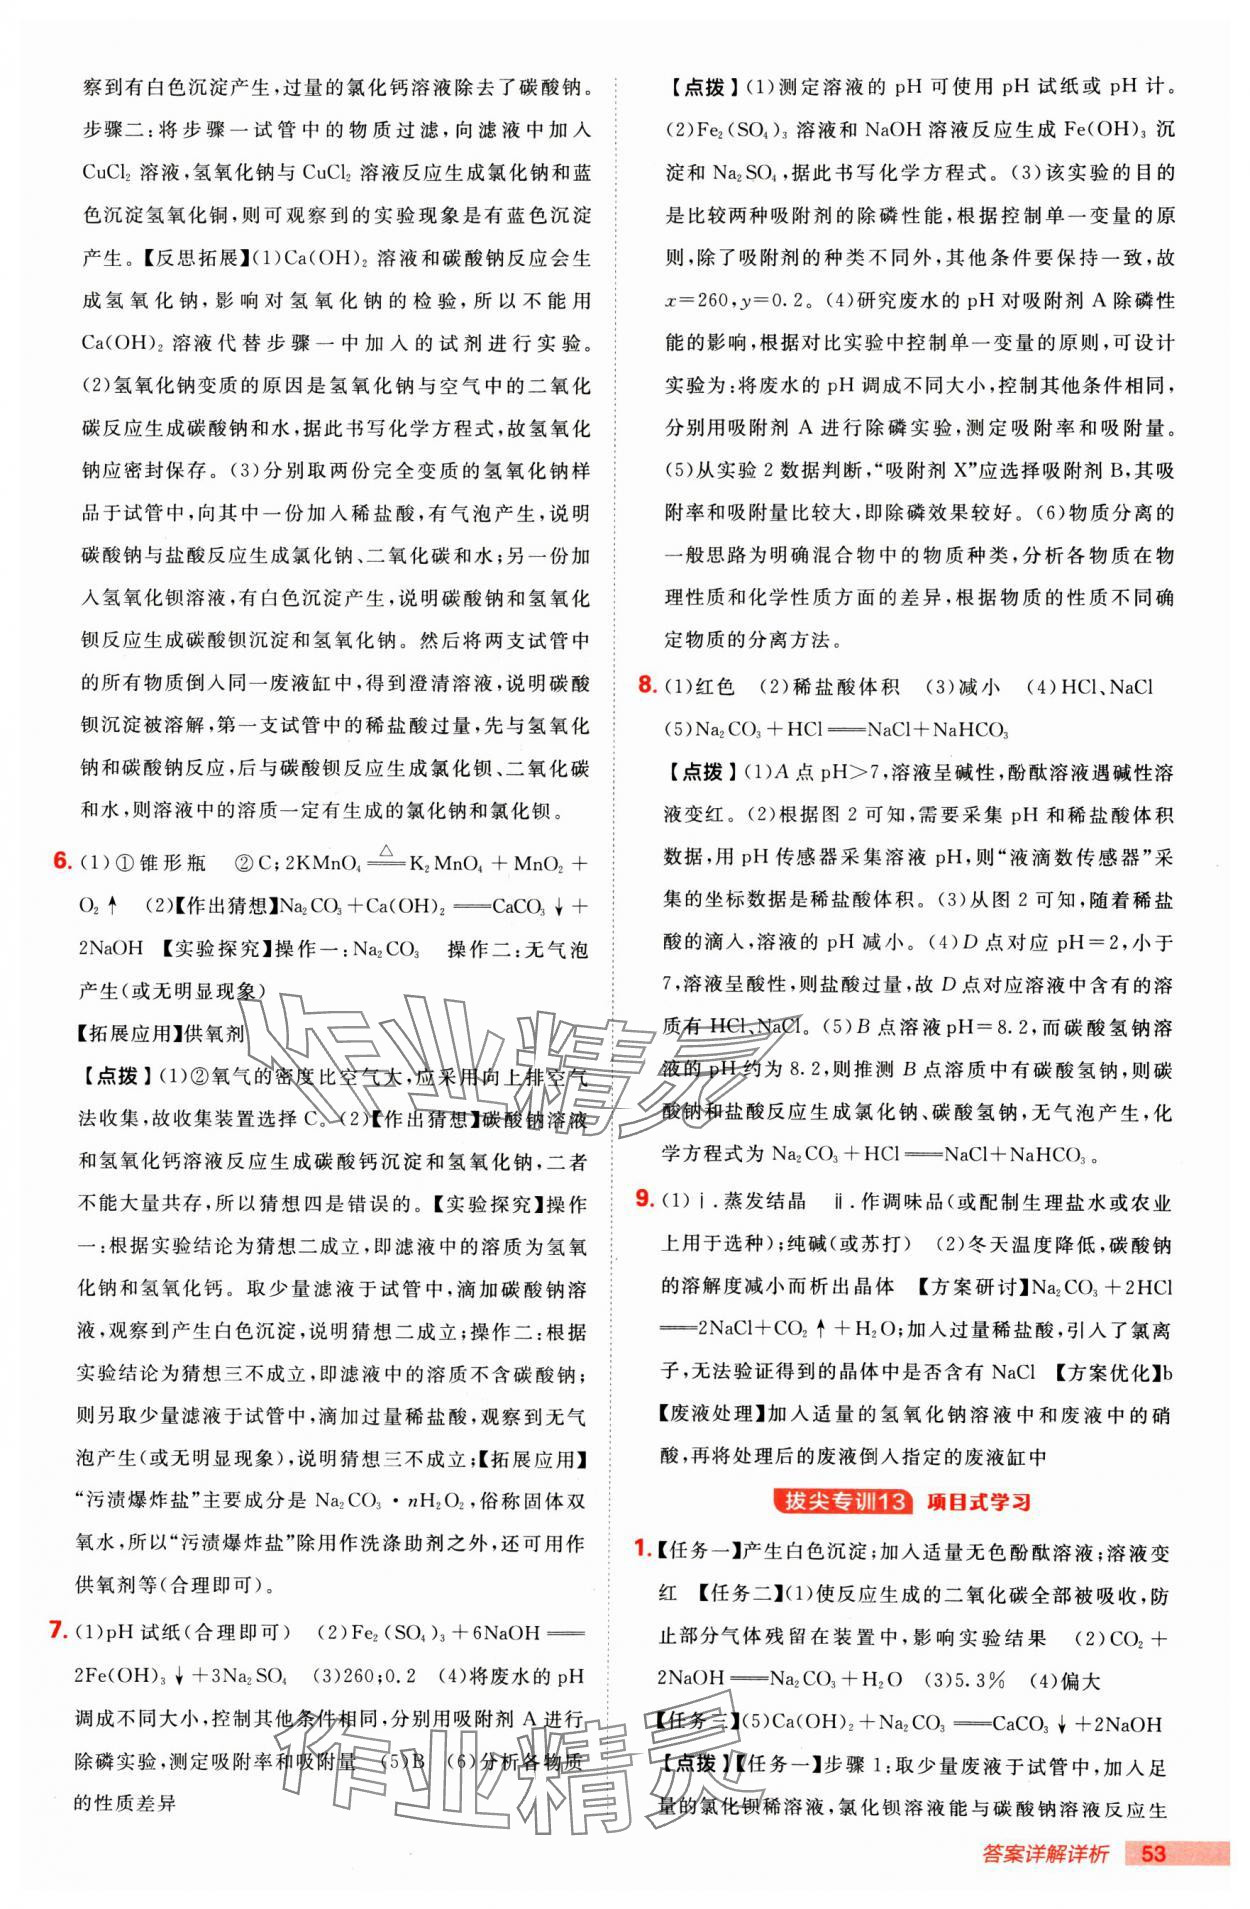 察到有白色沉淀产生,过量的氯化钙溶液除去了碳酸钠。
步骤二:将步骤一试管中的物质过滤,向滤液中加入
CuCl₂ 溶液,氢氧化钠与 CuCl₂ 溶液反应生成氯化钠和蓝
色沉淀氢氧化铜,则可观察到的实验现象是有蓝色沉淀
产生。【反思拓展】(1)Ca(OH)₂ 溶液和碳酸钠反应会生
成氢氧化钠,影响对氢氧化钠的检验,所以不能用
Ca(OH)₂ 溶液代替步骤一中加入的试剂进行实验。
(2)氢氧化钠变质的原因是氢氧化钠与空气中的二氧化
碳反应生成碳酸钠和水,据此书写化学方程式,故氢氧化
钠应密封保存。(3)分别取两份完全变质的氢氧化钠样
品于试管中,向其中一份加入稀盐酸,有气泡产生,说明
碳酸钠与盐酸反应生成氯化钠、二氧化碳和水;另一份加
入氢氧化钡溶液,有白色沉淀产生,说明碳酸钠和氢氧化
钡反应生成碳酸钡沉淀和氢氧化钠。然后将两支试管中
的所有物质倒入同一废液缸中,得到澄清溶液,说明碳酸
钡沉淀被溶解,第一支试管中的稀盐酸过量,先与氢氧化
钠和碳酸钠反应,后与碳酸钡反应生成氯化钡、二氧化碳
和水,则溶液中的溶质一定有生成的氯化钠和氯化钡。
6. (1)①锥形瓶 ②C;2KMnO₄ ≜ K₂MnO₄ + MnO₂ +
O₂↑ (2)【作出猜想】Na₂CO₃+Ca(OH)₂══CaCO₃↓+
2NaOH 【实验探究】操作一:Na₂CO₃ 操作二:无气泡
产生(或无明显现象)
【拓展应用】供氧剂
【点拨】(1)②氧气的密度比空气大,应采用向上排空气
法收集,故收集装置选择 C。(2)【作出猜想】碳酸钠溶液
和氢氧化钙溶液反应生成碳酸钙沉淀和氢氧化钠,二者
不能大量共存,所以猜想四是错误的。【实验探究】操作
一:根据实验结论为猜想二成立,即滤液中的溶质为氢氧
化钠和氢氧化钙。取少量滤液于试管中,滴加碳酸钠溶
液,观察到产生白色沉淀,说明猜想二成立;操作二:根据
实验结论为猜想三不成立,即滤液中的溶质不含碳酸钠;
则另取少量滤液于试管中,滴加过量稀盐酸,观察到无气
泡产生(或无明显现象),说明猜想三不成立;【拓展应用】
“污渍爆炸盐”主要成分是 Na₂CO₃·nH₂O₂,俗称固体双
氧水,所以“污渍爆炸盐”除用作洗涤助剂之外,还可用作
供氧剂等(合理即可)。
7. (1)pH 试纸(合理即可) (2)Fe₂(SO₄)₃+6NaOH══
2Fe(OH)₃↓+3Na₂SO₄ (3)260;0.2 (4)将废水的 pH
调成不同大小,控制其他条件相同,分别用吸附剂 A 进行
除磷实验,测定吸附率和吸附量 (5)B (6)分析各物质
的性质差异
【点拨】(1)测定溶液的 pH 可使用 pH 试纸或 pH 计。
(2)Fe₂(SO₄)₃ 溶液和 NaOH 溶液反应生成 Fe(OH)₃ 沉
淀和 Na₂SO₄,据此书写化学方程式。(3)该实验的目的
是比较两种吸附剂的除磷性能,根据控制单一变量的原
则,除了吸附剂的种类不同外,其他条件要保持一致,故
x=260,y=0.2。(4)研究废水的 pH 对吸附剂 A 除磷性
能的影响,根据对比实验中控制单一变量的原则,可设计
实验为:将废水的 pH 调成不同大小,控制其他条件相同,
分别用吸附剂 A 进行除磷实验,测定吸附率和吸附量。
(5)从实验 2 数据判断,“吸附剂 X”应选择吸附剂 B,其吸
附率和吸附量比较大,即除磷效果较好。(6)物质分离的
一般思路为明确混合物中的物质种类,分析各物质在物
理性质和化学性质方面的差异,根据物质的性质不同确
定物质的分离方法。
8. (1)红色 (2)稀盐酸体积 (3)减小 (4)HCl、NaCl
(5)Na₂CO₃+HCl══NaCl+NaHCO₃
【点拨】(1)A 点 pH>7,溶液呈碱性,酚酞溶液遇碱性溶
液变红。(2)根据图 2 可知,需要采集 pH 和稀盐酸体积
数据,用 pH 传感器采集溶液 pH,则“液滴数传感器”采
集的坐标数据是稀盐酸体积。(3)从图 2 可知,随着稀盐
酸的滴入,溶液的 pH 减小。(4)D 点对应 pH=2,小于
7,溶液呈酸性,则盐酸过量,故 D 点对应溶液中含有的溶
质有 HCl、NaCl。(5)B 点溶液 pH=8.2,而碳酸氢钠溶
液的 pH 约为 8.2,则推测 B 点溶质中有碳酸氢钠,则碳
酸钠和盐酸反应生成氯化钠、碳酸氢钠,无气泡产生,化
学方程式为 Na₂CO₃+HCl══NaCl+NaHCO₃。
9. (1)ⅰ.蒸发结晶 ⅱ.作调味品(或配制生理盐水或农业
上用于选种);纯碱(或苏打) (2)冬天温度降低,碳酸钠
的溶解度减小而析出晶体 【方案研讨】Na₂CO₃+2HCl
══2NaCl+CO₂↑+H₂O;加入过量稀盐酸,引入了氯离
子,无法验证得到的晶体中是否含有 NaCl 【方案优化】b
【废液处理】加入适量的氢氧化钠溶液中和废液中的硝
酸,再将处理后的废液倒入指定的废液缸中
拔尖专训13 项目式学习
1. 【任务一】产生白色沉淀;加入适量无色酚酞溶液;溶液变
红 【任务二】(1)使反应生成的二氧化碳全部被吸收,防
止部分气体残留在装置中,影响实验结果 (2)CO₂+
2NaOH══Na₂CO₃+H₂O (3)5.3% (4)偏大
【任务三】(5)Ca(OH)₂+Na₂CO₃══CaCO₃↓+2NaOH
【点拨】【任务一】步骤 1:取少量废液于试管中,加入足
量的氯化钡稀溶液,氯化钡溶液能与碳酸钠溶液反应生
作业精灵
作业精灵
答案详解详析 53